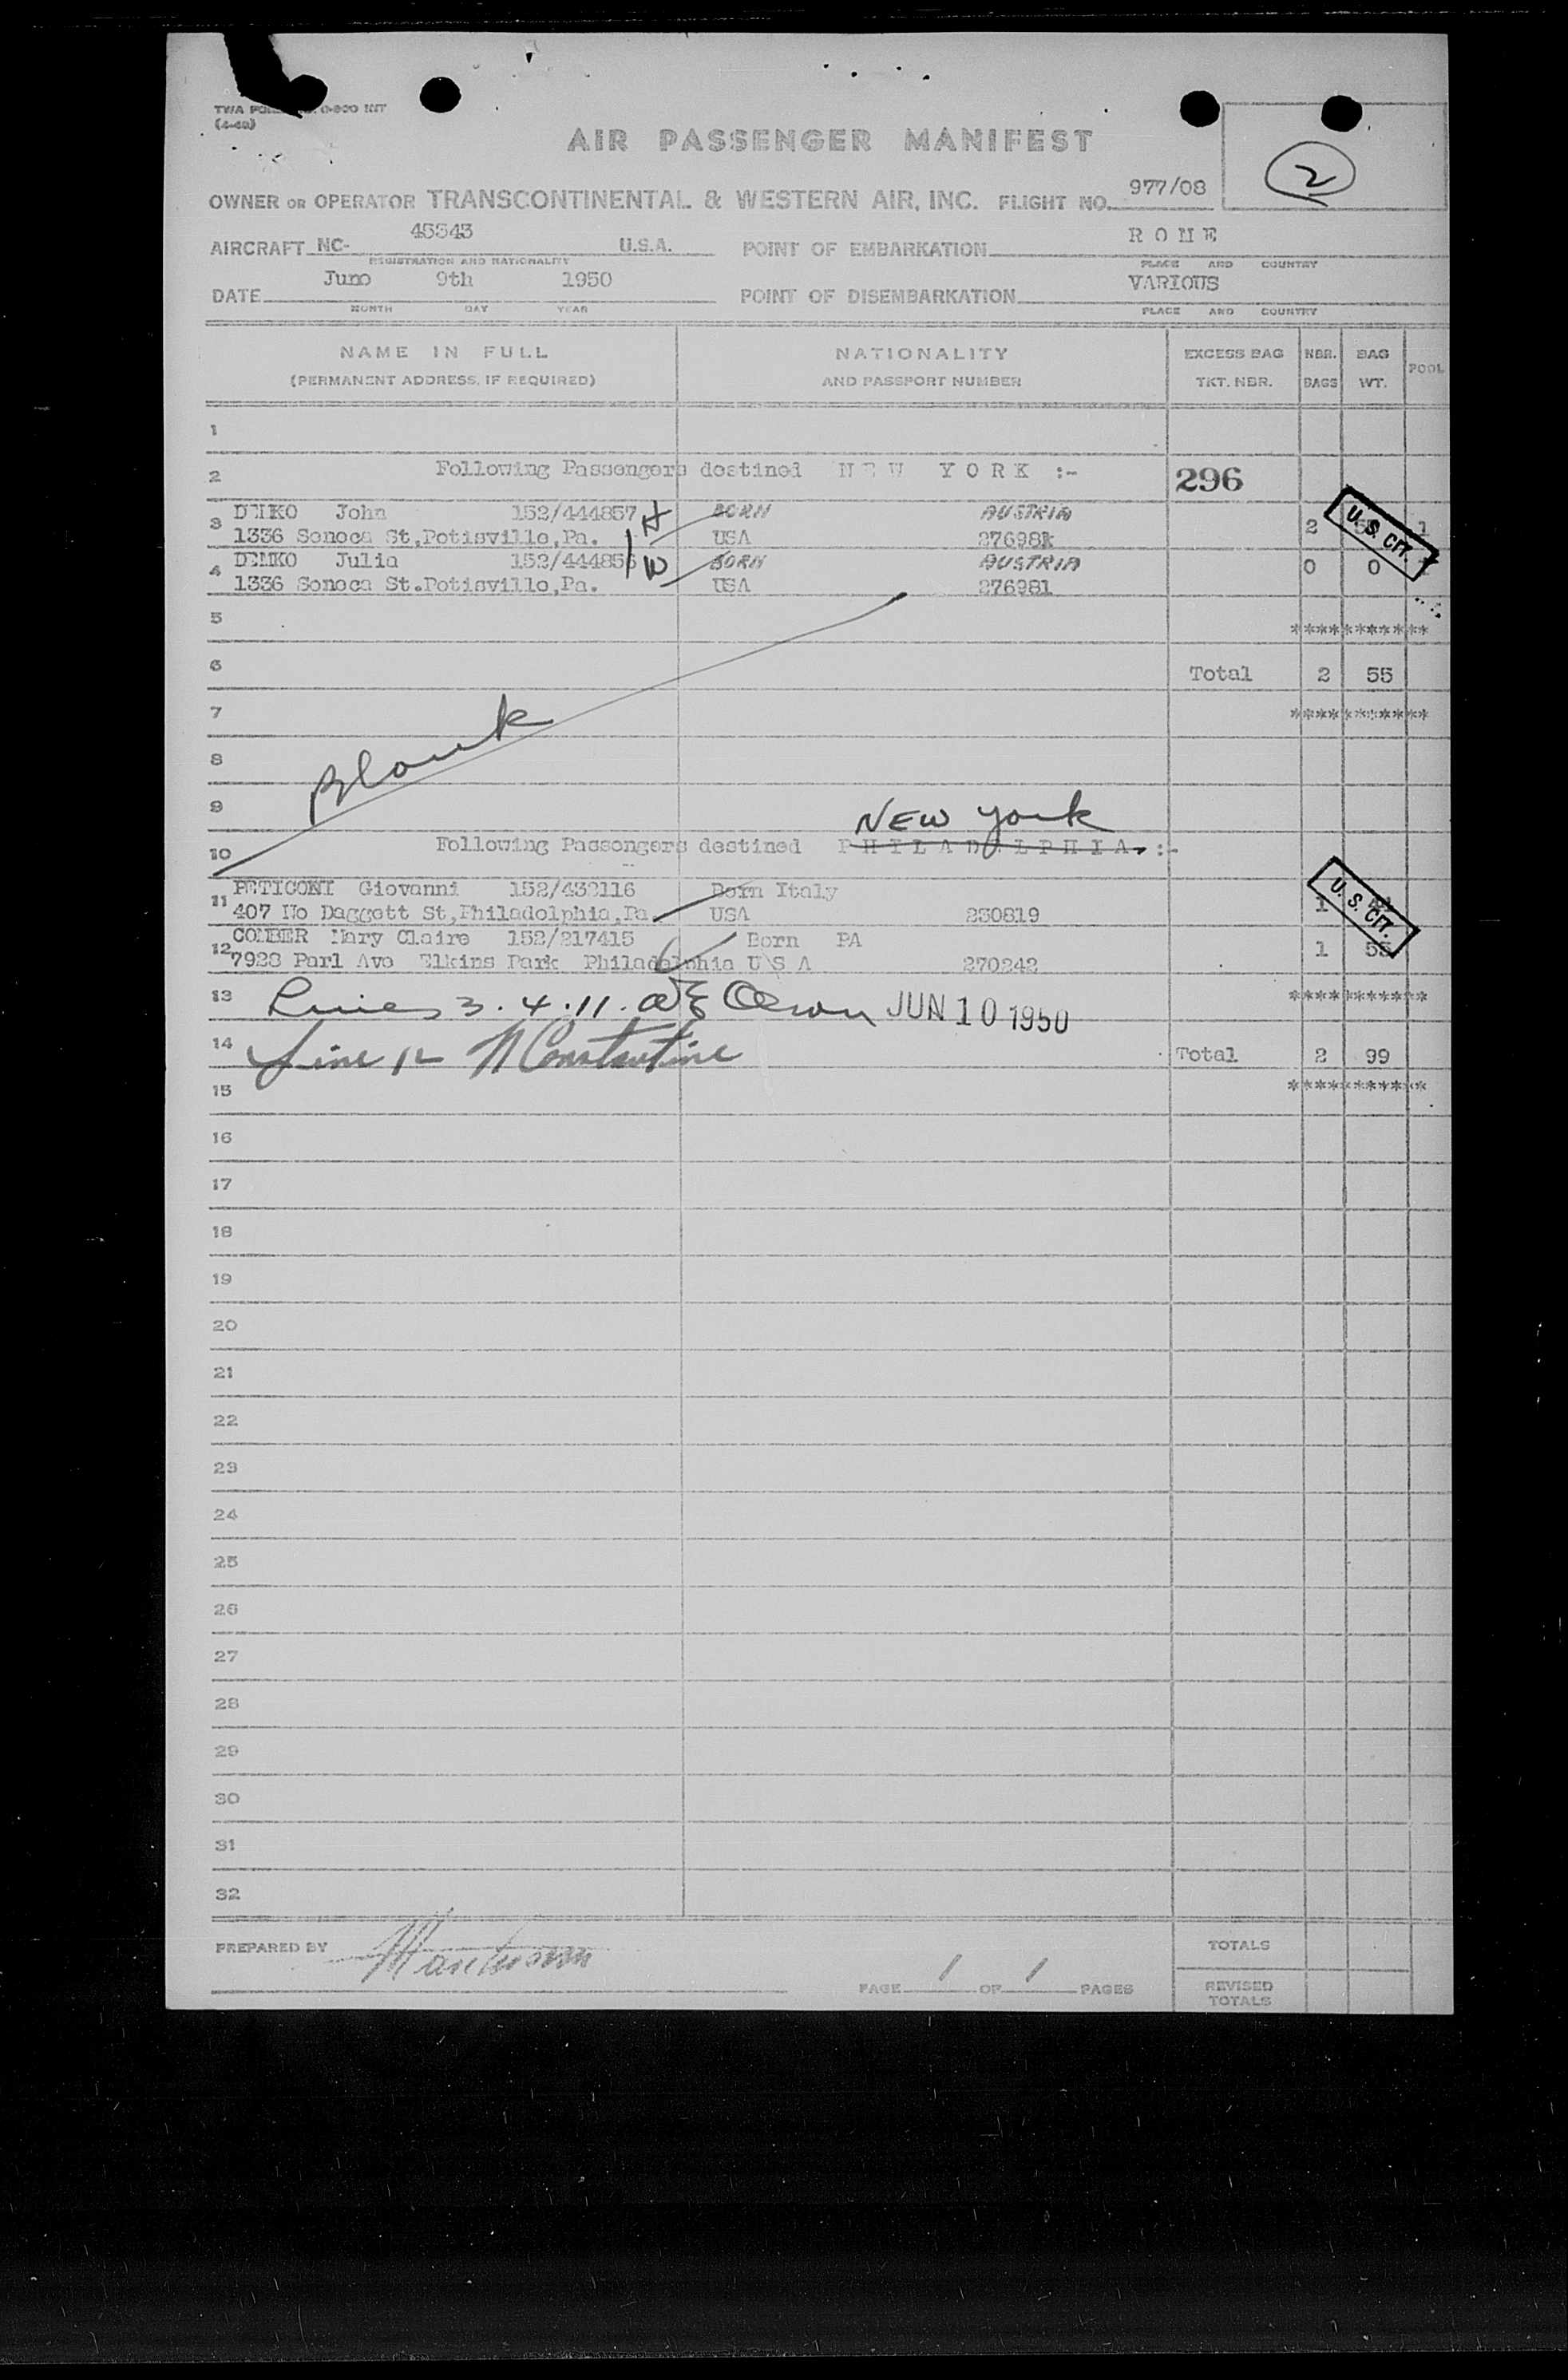 (4-49)
AIR PASSENGER MANIFEST
2
OWNER OR OPERATOR TRANSCONTINENTAL & WESTERN AIR, INC. FLIGHT NO. 977/08
AIRCRAFT NC- 45543 U.S.A. POINT OF EMBARKATION R O M E
REGISTRATION AND NATIONALITY PLACE AND COUNTRY
DATE June 9th 1950 POINT OF DISEMBARKATION VARIOUS
MONTH DAY YEAR PLACE AND COUNTRY
NAME IN FULL NATIONALITY EXCESS BAG NBR. BAG POOL
(PERMANENT ADDRESS, IF REQUIRED) AND PASSPORT NUMBER TKT. NBR. BAGS WT.
1
2 Following Passengers destined N E W Y O R K :- 296
3 DEMKO John 152/444857 H BORN AUSTRIA 2 1
1336 Seneca St,Potisville,Pa. USA U. S. CIT.
4 DEMKO Julia 152/444856 W BORN AUSTRIA 0 0
1336 Seneca St.Potisville,Pa. USA 276981
5 ***********
6 Total 2 55
7 ***********
Blank
8
9 New York
10 Following Passengers destined P H I L A D E L P H I A. :-
11 PETICONI Giovanni 152/432116 Born Italy 1
407 No Daggett St,Philadelphia,Pa USA 230819 U. S. CIT.
12 COMBER Mary Claire 152/217415 Born PA 1
7928 Parl Ave Elkins Park Philadelphia U S A 270242
13 Lines 3. 4. 11. Olson JUN 10 1950 ***********
14 Line 12 N Constantine Total 2 99
15 ***********
16
17
18
19
20
21
22
23
24
25
26
27
28
29
30
31
32
PREPARED BY TOTALS
PAGE 1 OF 1 PAGES REVISED
TOTALS